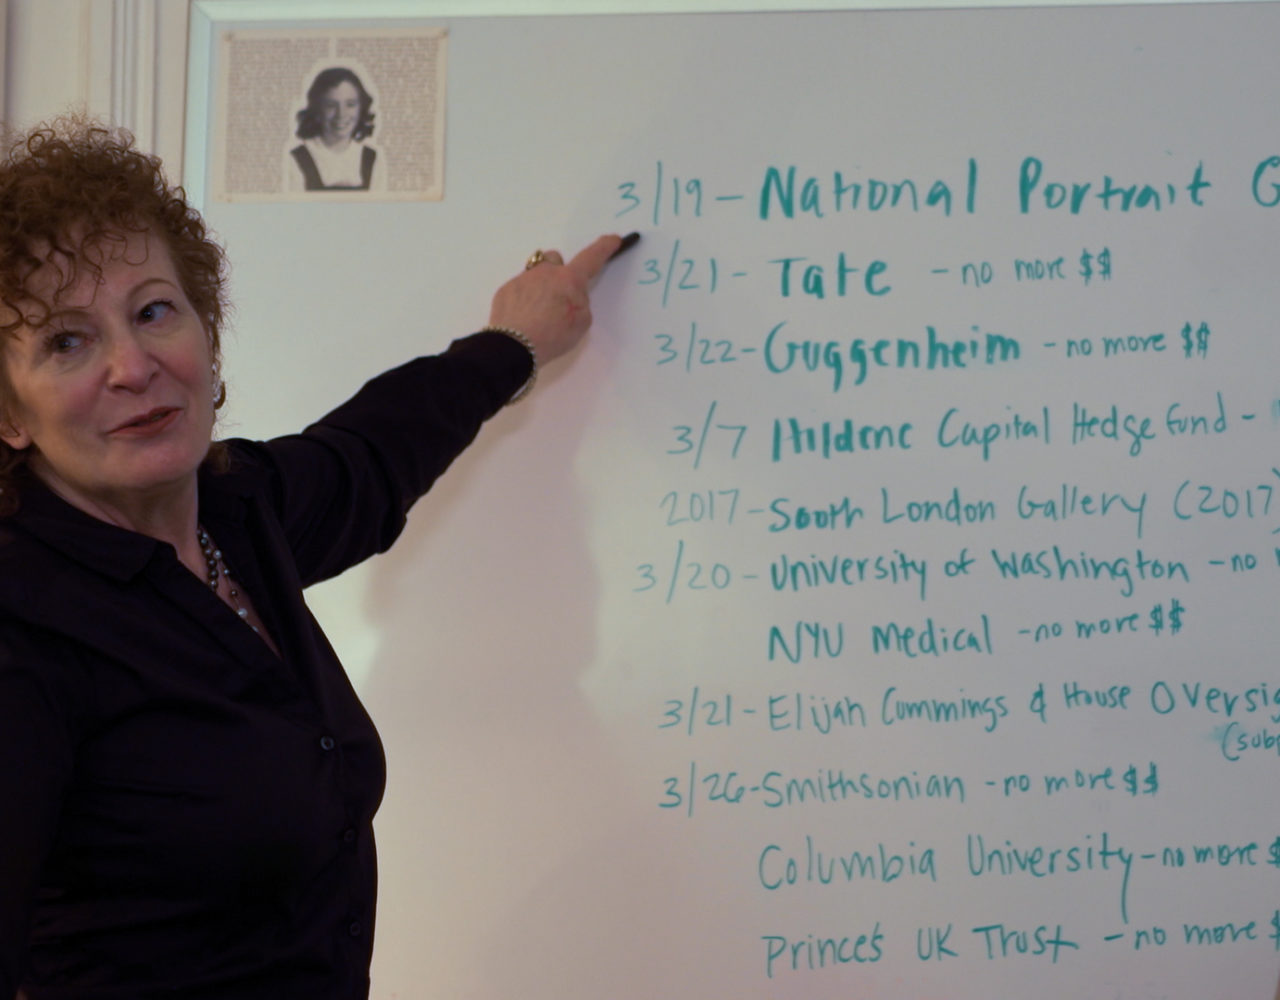 3/19 - National Portrait G
3/21 - Tate - no more $$
3/22 - Guggenheim - no more $$
3/7 Hildene Capital Hedge Fund -
2017 - South London Gallery (2017)
3/20 - University of Washington - no
NYU Medical - no more $$
3/21 - Elijah Cummings & House Oversig
(sub
3/26 - Smithsonian - no more $$
Columbia University - no more $
Prince's UK Trust - no more $